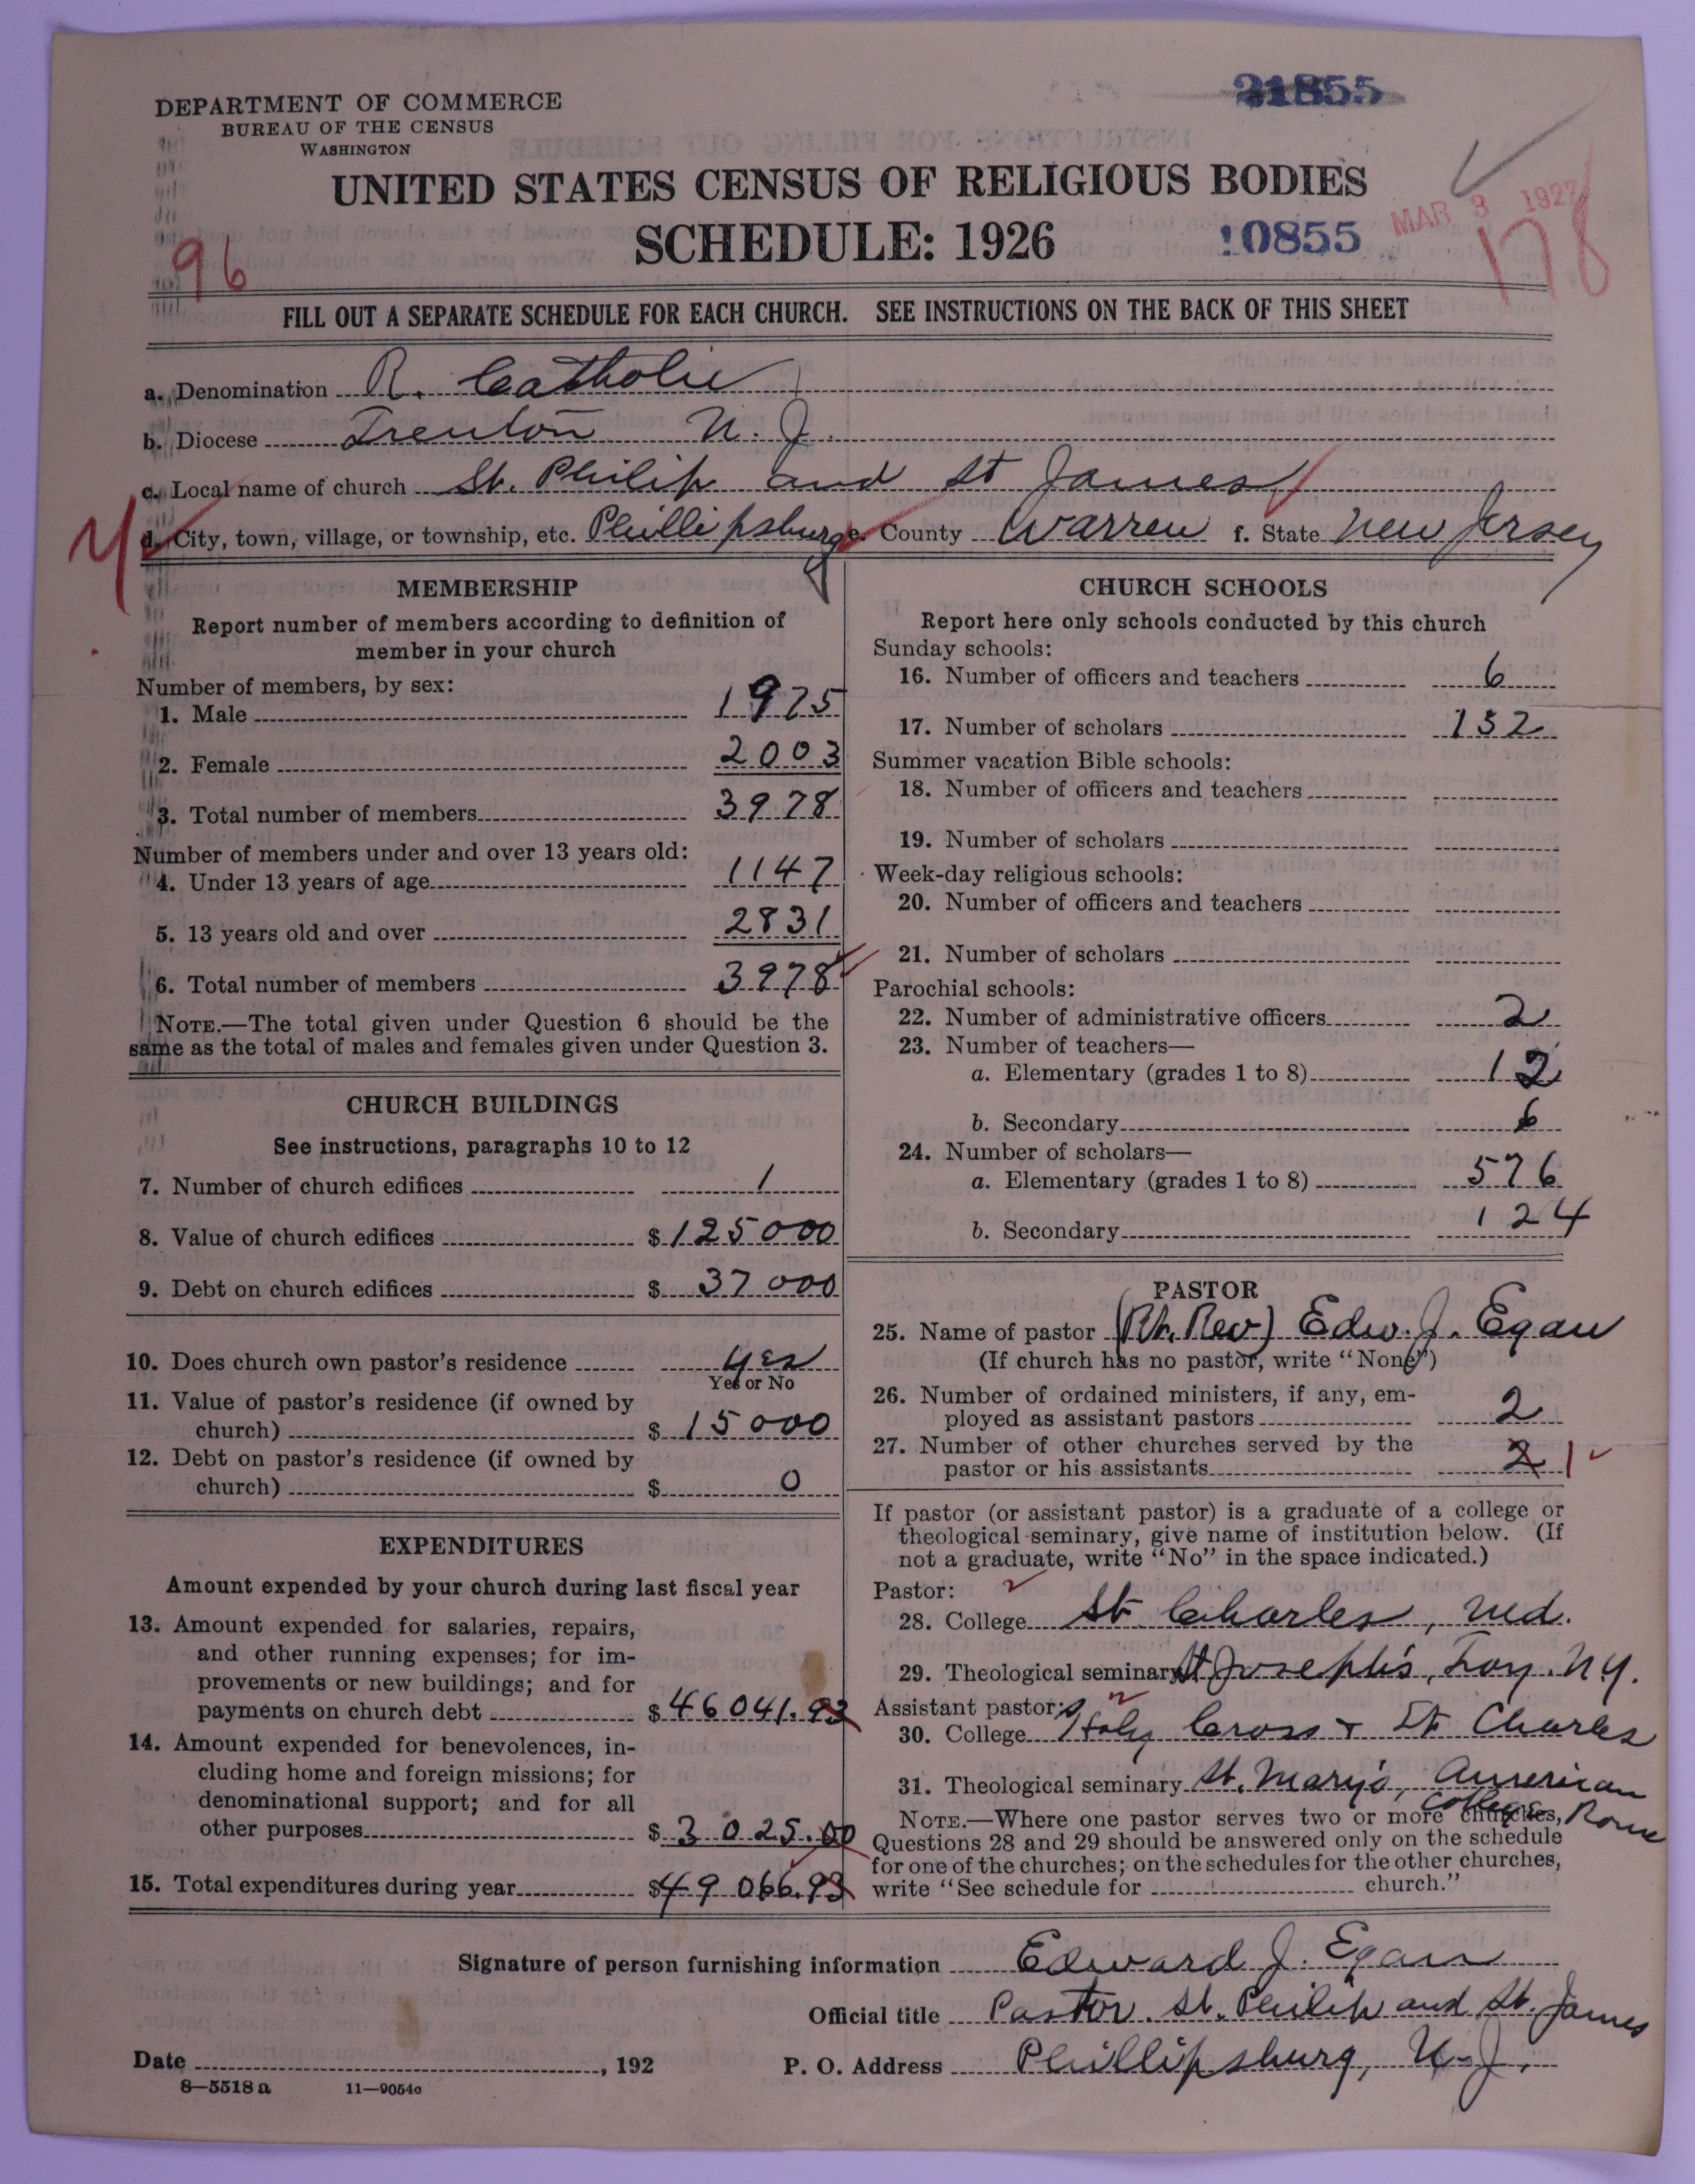 21855
DEPARTMENT OF COMMERCE
BUREAU OF THE CENSUS
WASHINGTON
UNITED STATES CENSUS OF RELIGIOUS BODIES
SCHEDULE: 1926
10855
MAR 3 1927
178
96
FILL OUT A SEPARATE SCHEDULE FOR EACH CHURCH. SEE INSTRUCTIONS ON THE BACK OF THIS SHEET
a. Denomination R. Catholic
b. Diocese Trenton N. J.
c. Local name of church St. Philip and St James
d. City, town, village, or township, etc. Phillipsburg e. County Warren f. State New Jersey
MEMBERSHIP
Report number of members according to definition of
member in your church
Number of members, by sex:
1. Male 1975
2. Female 2003
3. Total number of members 3978
Number of members under and over 13 years old:
4. Under 13 years of age 1147
5. 13 years old and over 2831
6. Total number of members 3978
NOTE.—The total given under Question 6 should be the
same as the total of males and females given under Question 3.
CHURCH BUILDINGS
See instructions, paragraphs 10 to 12
7. Number of church edifices 1
8. Value of church edifices $125000
9. Debt on church edifices $37000
10. Does church own pastor's residence yes
Yes or No
11. Value of pastor's residence (if owned by
church) $15000
12. Debt on pastor's residence (if owned by
church) $0
EXPENDITURES
Amount expended by your church during last fiscal year
13. Amount expended for salaries, repairs,
and other running expenses; for im-
provements or new buildings; and for
payments on church debt $46041.93
14. Amount expended for benevolences, in-
cluding home and foreign missions; for
denominational support; and for all
other purposes $3025.00
15. Total expenditures during year $49066.93
CHURCH SCHOOLS
Report here only schools conducted by this church
Sunday schools:
16. Number of officers and teachers 6
17. Number of scholars 152
Summer vacation Bible schools:
18. Number of officers and teachers
19. Number of scholars
Week-day religious schools:
20. Number of officers and teachers
21. Number of scholars
Parochial schools:
22. Number of administrative officers 2
23. Number of teachers—
a. Elementary (grades 1 to 8) 12
b. Secondary 6
24. Number of scholars—
a. Elementary (grades 1 to 8) 576
b. Secondary 124
PASTOR
25. Name of pastor (Rt. Rev) Edw. J. Egan
(If church has no pastor, write "None")
26. Number of ordained ministers, if any, em-
ployed as assistant pastors 2
27. Number of other churches served by the
pastor or his assistants 2 1
If pastor (or assistant pastor) is a graduate of a college or
theological seminary, give name of institution below. (If
not a graduate, write "No" in the space indicated.)
Pastor:
28. College St Charles, Md.
29. Theological seminary St Joseph's, Troy. N.Y.
Assistant pastor:s
30. College Holy Cross + St Charles
31. Theological seminary St. Mary's, American
College, Rome
NOTE.—Where one pastor serves two or more churches,
Questions 28 and 29 should be answered only on the schedule
for one of the churches; on the schedules for the other churches,
write "See schedule for church."
Signature of person furnishing information Edward J. Egan
Official title Pastor. St. Philip and St. James
Date , 192 P. O. Address Phillipsburg, N. J.
8—5518 a 11—9054a